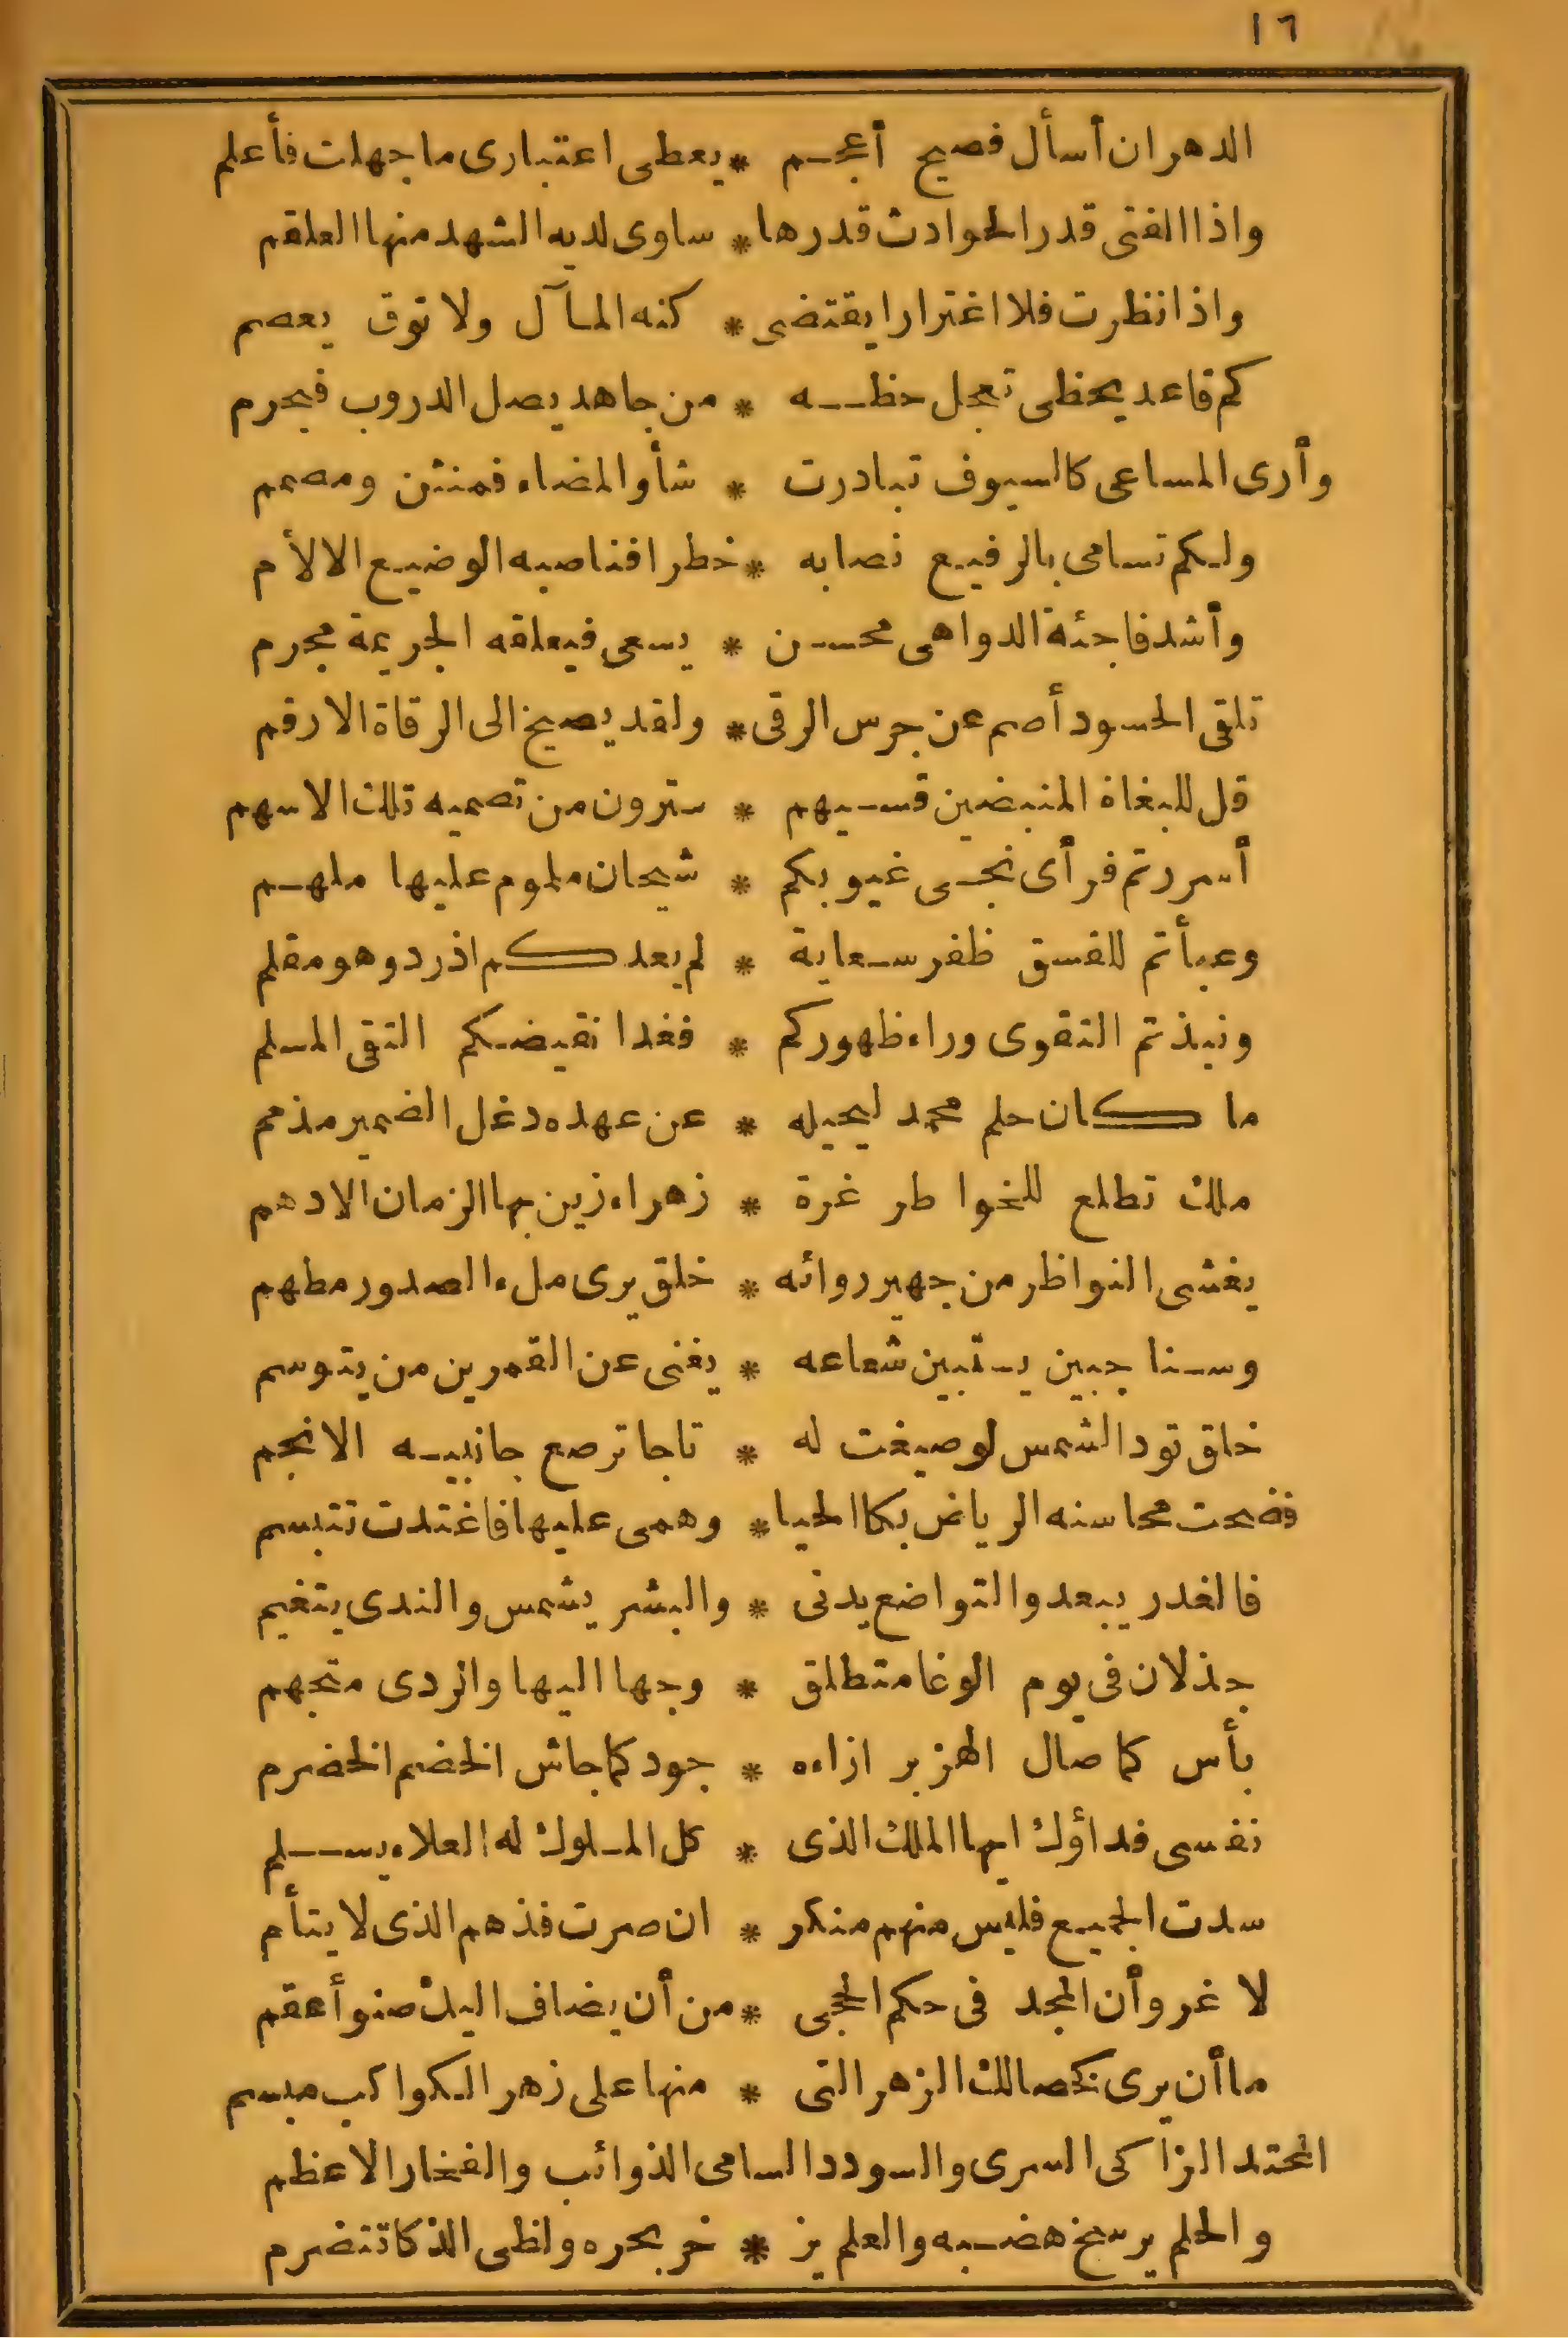 ١٦
الدهر ان أسأل فصيح أعجم * يعطى اعتبارى ما جهلت فأعلم
واذا الفتى قدر الحوادث قدرها * ساوى لديه الشهد منها العلقم
واذا نظرت فلا اغترارا يقتضى * كنه المآل ولا توق يعصم
كم قاعد يحظى تعجل حظه * من جاهد يصل الدروب فيحرم
وأرى المساعى كالسيوف تبادرت * شأو المضاء فمنثن ومصمم
ولكم تسامى بالرفيع نصابه * خطرا فناصبه الوضيع الالأم
وأشد فاجئة الدواهى محسن * يسعى فيعلقه الجريمة مجرم
تلقى الحسود أصم عن جرس الرقى * ولقد يصيخ الى الرقاة الارقم
قل للبغاة المنبضين قسيهم * سترون من تصميه تلك الاسهم
أسررتم فرأى نجى غيوبكم * شيحان ملموم عليها ملهم
وعبأتم للفسق ظفر سعاية * لم يعدكم اذ ردوهو مقلم
ونبذتم التقوى وراء ظهوركم * فغدا نقيضكم التقى المسلم
ما كان حلم محمد ليحيله * عن عهده دغل الضمير مذمم
ملك تطلع للخواطر غرة * زهراء زين بها الزمان الادهم
يغشى النواظر من جهير روائه * خلق يرى ملء الصدور مطهم
وسنا جبين يستبين شعاعه * يغنى عن القمرين من يتوسم
خلق تود الشمس لو صيغت له * تاجا ترصع جانبيه الانجم
فضحت محاسنه الرياض بكا الحيا * وهمى عليها فاغتدت تتبسم
فالغدر يبعد والتواضع يدنى * والبشر يشمس والندى يتغيم
جذلان فى يوم الوغا متطلق * وجها اليها والردى متجهم
بأس كما صال الهزبر ازاءه * جود كما جاش الخضم الخضرم
نفسى فداؤك ايها الملك الذى * كل الملوك له العلاء يسلم
سدت الجميع فليس منهم منكر * ان صرت فذهم الذى لا يتأم
لا غرو أن المجد فى حكم الحجى * من أن يضاف اليك صنو أعقم
ما أن يرى كخصالك الزهر التى * منها على زهر الكواكب ميسم
المحتد الزاكى السرى والسودد السامى الذوائب والفخار الاعظم
والحلم يرسخ هضبه والعلم يز * خر بحره ولظى الذكا تتضرم